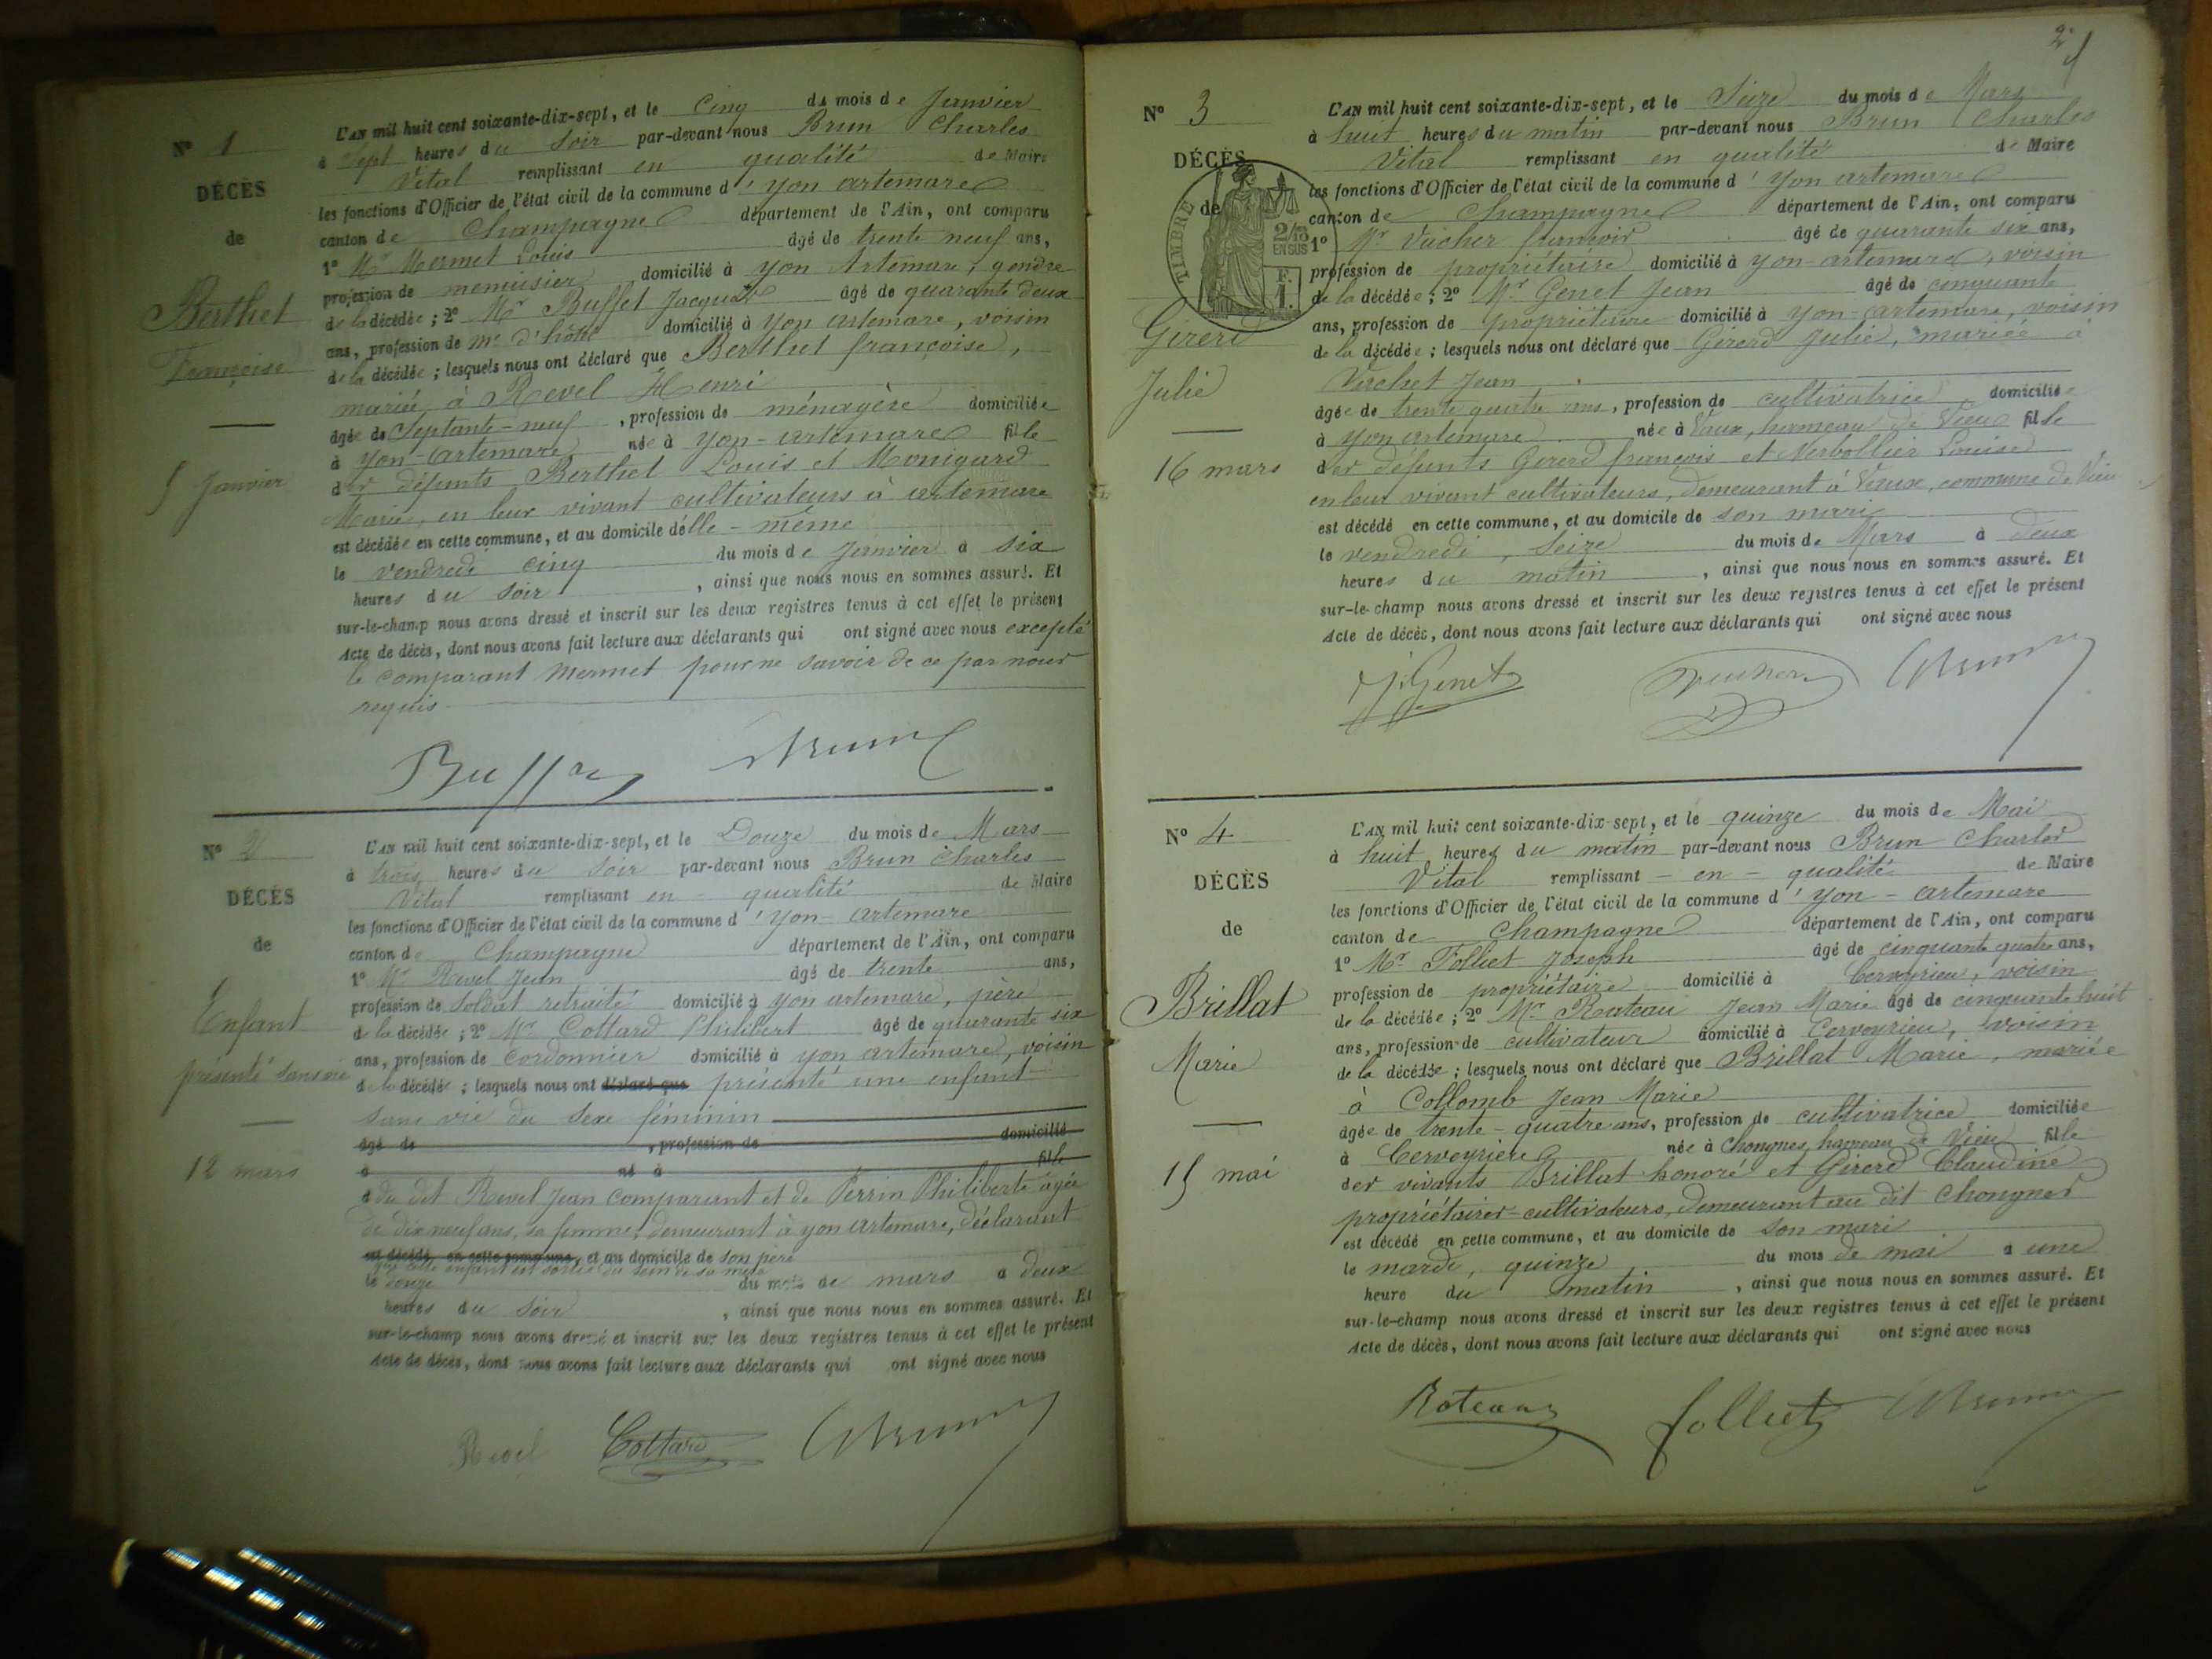 Nº 1
DÉCÈS
de
Berthet
Françoise
5 Janvier
L'AN mil huit cent soixante-dix-sept, et le Cinq du mois de Janvier
à Sept heures du Soir par-devant nous Brun Charles
Vital remplissant en qualité de Maire
les fonctions d'Officier de l'état civil de la commune d'yon artemare
canton de Champagne département de l'Ain, ont comparu
1º Mr Mermet Louis âgé de trente neuf ans,
profession de menuisier domicilié à yon Artemare, gendre
de la décédée ; 2º Mr Buffet Jacques âgé de quarante deux
ans, profession de Me d'hôtel domicilié à yon artemare, voisin
de la décédée ; lesquels nous ont déclaré que Berthet françoise,
mariée à Revel Henri
âgée de Septante-neuf , profession de ménagère domiciliée
à yon-artemare née à yon-artemare fille
des défunts Berthet Louis et Monigard
Marie, en leur vivant cultivateurs à artemare
est décédée en cette commune, et au domicile d'elle-même
le vendredi cinq du mois de Janvier à six
heures du soir , ainsi que nous nous en sommes assuré. Et
sur-le-champ nous avons dressé et inscrit sur les deux registres tenus à cet effet le présent
Acte de décès, dont nous avons fait lecture aux déclarants qui ont signé avec nous excepté
le comparant Mermet pour ne savoir de ce par nous
requis
Buffet Brun
Nº 2
DÉCÈS
de
Enfant
présenté sans vie
12 mars
L'AN mil huit cent soixante-dix-sept, et le Douze du mois de Mars
à trois heures du Soir par-devant nous Brun Charles
Vital remplissant en qualité de Maire
les fonctions d'Officier de l'état civil de la commune d'yon-artemare
canton de Champagne département de l'Ain, ont comparu
1º Mr Revel Jean âgé de trente ans,
profession de Soldat retraité domicilié à yon artemare, père
de la décédée ; 2º Mr Cottard Philibert âgé de quarante six
ans, profession de Cordonnier domicilié à yon artemare, voisin
de la décédée ; lesquels nous ont déclaré que présenté une enfant
sans vie du sexe féminin
âgé de , profession de domicilié
à né à fille
du dit Revel Jean comparant et de Perrin Philiberte âgée
de dix neuf ans, sa femme, demeurant à yon artemare, déclarant
est décédé en cette commune, et au domicile de son père
que cette enfant est sortie du sein de sa mère
le douze du mois de mars à deux
heures du Soir , ainsi que nous nous en sommes assuré. Et
sur-le-champ nous avons dressé et inscrit sur les deux registres tenus à cet effet le présent
Acte de décès, dont nous avons fait lecture aux déclarants qui ont signé avec nous
Revel Cottard CBrun
2
Nº 3
DÉCÈS
de
TIMBRE
2/10
EN SUS
F.
1.
Girerd
Julie
16 mars
L'AN mil huit cent soixante-dix-sept, et le Seize du mois de Mars
à huit heures du matin par-devant nous Brun Charles
Vital remplissant en qualité de Maire
les fonctions d'Officier de l'état civil de la commune d'yon artemare
canton de Champagne département de l'Ain, ont comparu
1º Mr Vucher françois âgé de quarante six ans,
profession de propriétaire domicilié à yon-artemare, voisin
de la décédée ; 2º Mr Genet Jean âgé de cinquante
ans, profession de propriétaire domicilié à yon-artemare, voisin
de la décédée ; lesquels nous ont déclaré que Girerd Julie, mariée à
Jean
âgée de trente quatre ans, profession de cultivatrice domiciliée
à yon artemare née à Vaux, hameau de Vieu fille
des défunts Girerd françois et Louise
en leur vivant cultivateurs, demeurant à Vaux, commune de Vieu
est décédé en cette commune, et au domicile de son mari
le vendredi, seize du mois de Mars à deux
heures du matin , ainsi que nous nous en sommes assuré. Et
sur-le-champ nous avons dressé et inscrit sur les deux registres tenus à cet effet le présent
Acte de décès, dont nous avons fait lecture aux déclarants qui ont signé avec nous
J. Genet Vucher CBrun
Nº 4
DÉCÈS
de
Brillat
Marie
15 mai
L'AN mil huit cent soixante-dix-sept, et le quinze du mois de Mai
à huit heures du matin par-devant nous Brun Charles
Vital remplissant - en - qualité de Maire
les fonctions d'Officier de l'état civil de la commune d'yon-artemare
canton de Champagne département de l'Ain, ont comparu
1º Mr Folliet Joseph âgé de cinquante quatre ans,
profession de propriétaire domicilié à Cerveyrieu, voisin
de la décédée ; 2º Mr Rateau Jean Marie âgé de cinquante huit
ans, profession de cultivateur domicilié à Cerveyrieu, voisin
de la décédée ; lesquels nous ont déclaré que Brillat Marie, mariée
à Collomb Jean Marie
âgée de trente-quatre ans, profession de cultivatrice domiciliée
à Cerveyrieu née à Chongnes, hameau de Vieu fille
des vivants Brillat honoré et Girerd Claudine
propriétaires-cultivateurs, demeurant au dit Chongnes
est décédé en cette commune, et au domicile de son mari
le mardi, quinze du mois de mai à une
heure du matin , ainsi que nous nous en sommes assuré. Et
sur-le-champ nous avons dressé et inscrit sur les deux registres tenus à cet effet le présent
Acte de décès, dont nous avons fait lecture aux déclarants qui ont signé avec nous
Rateau folliet CBrun